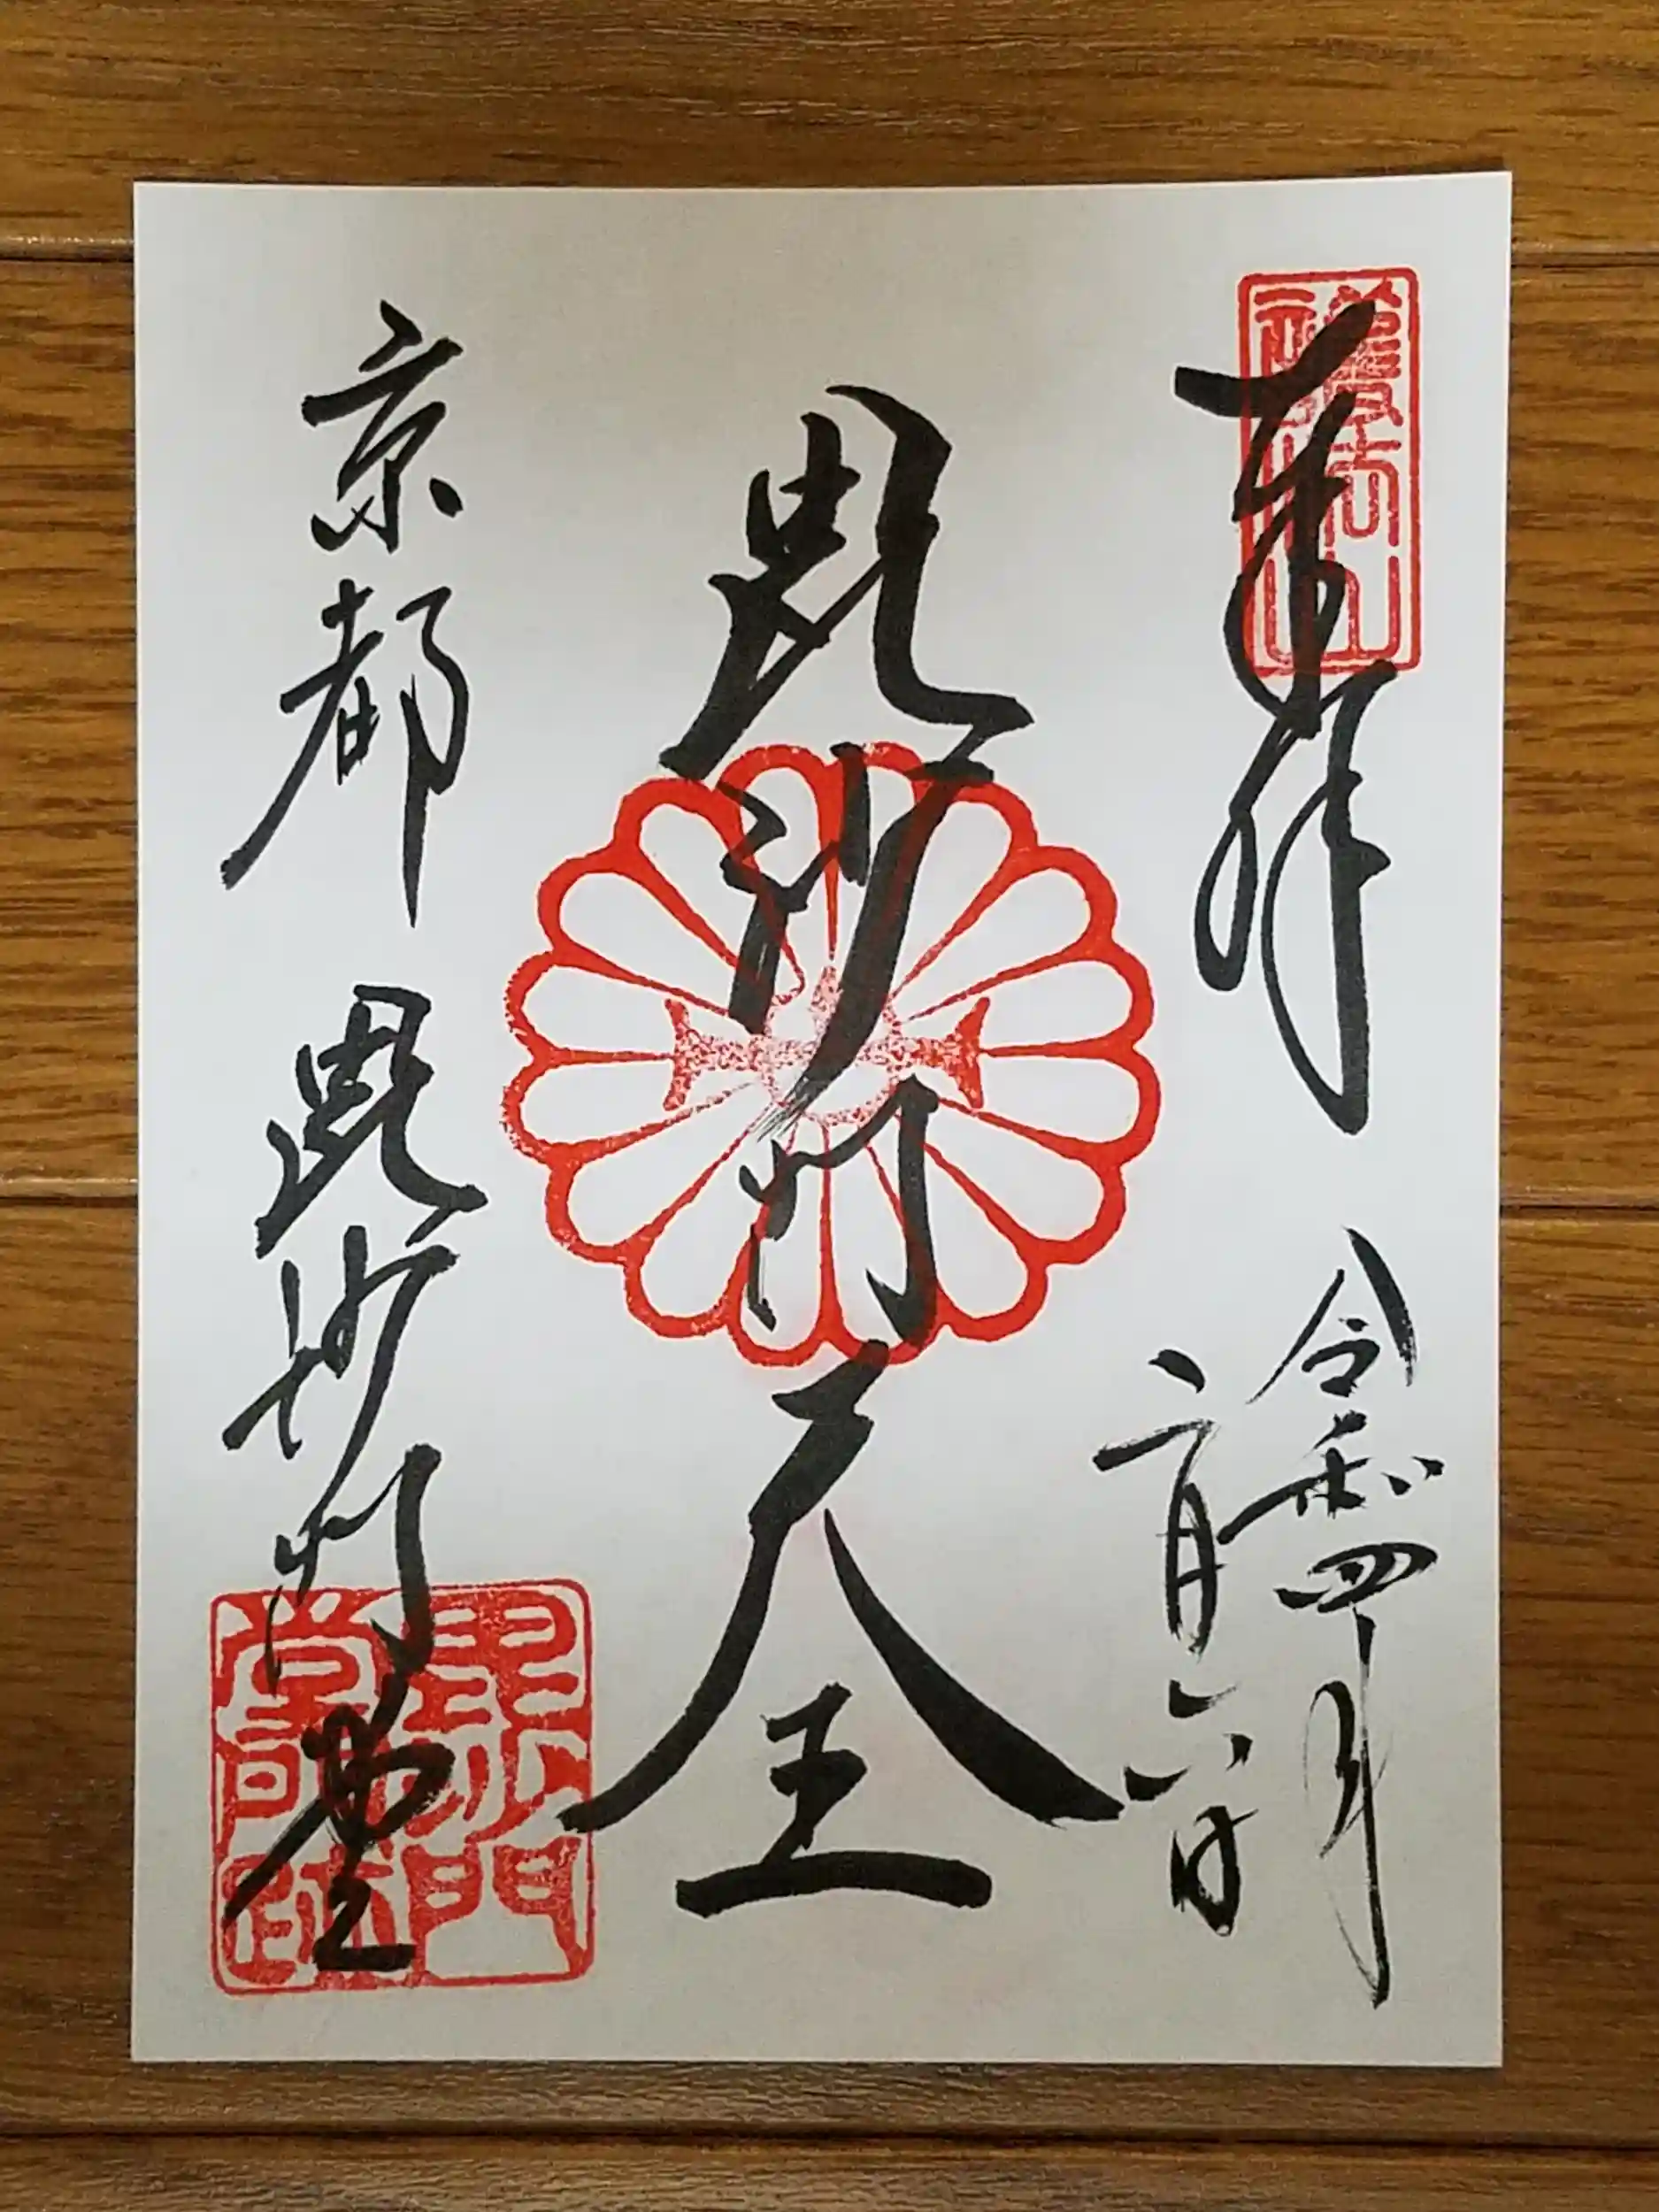 奉拝
令和四年
二月六日
毘沙門天王
護法山
京都 毘沙門堂
毘沙門
堂門跡